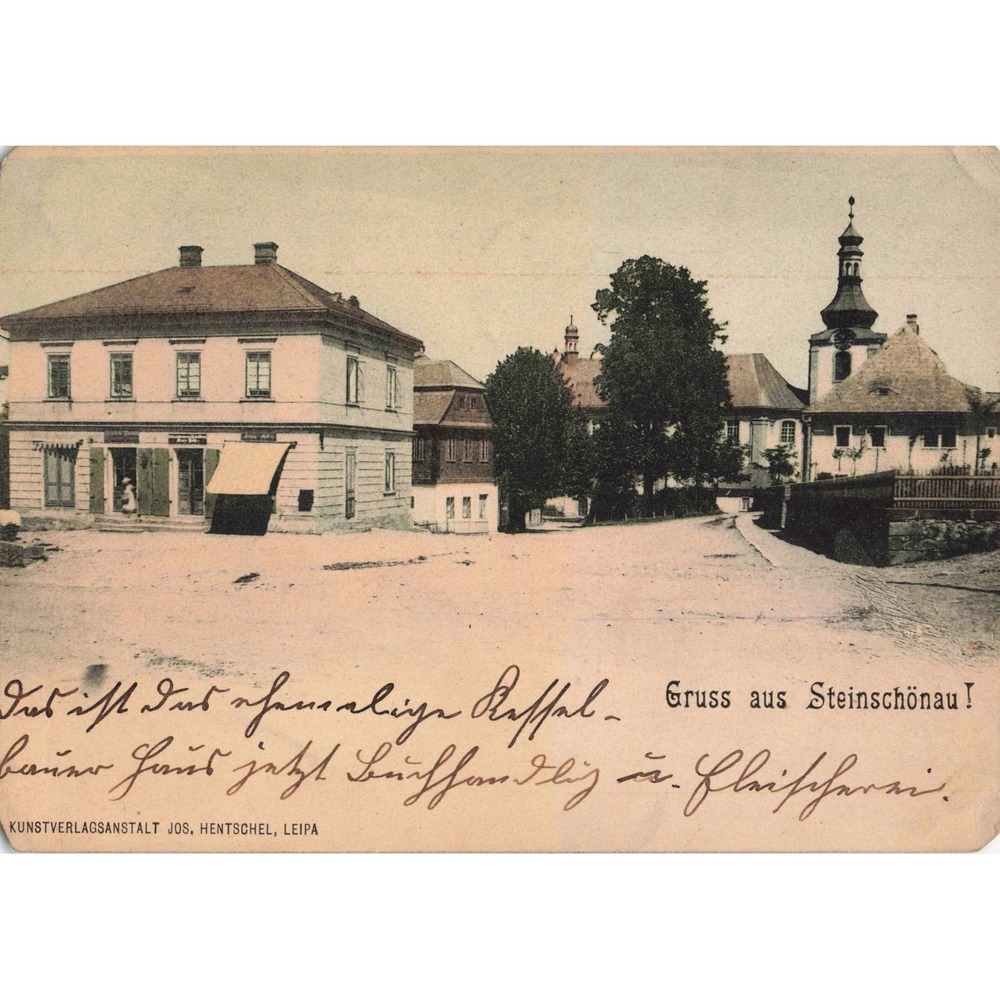 Gruss aus Steinschönau!
Das ist das ehemalige Kessel-
bauer Haus jetzt Buchhandlg u. Fleischerei.
KUNSTVERLAGSANSTALT JOS. HENTSCHEL, LEIPA